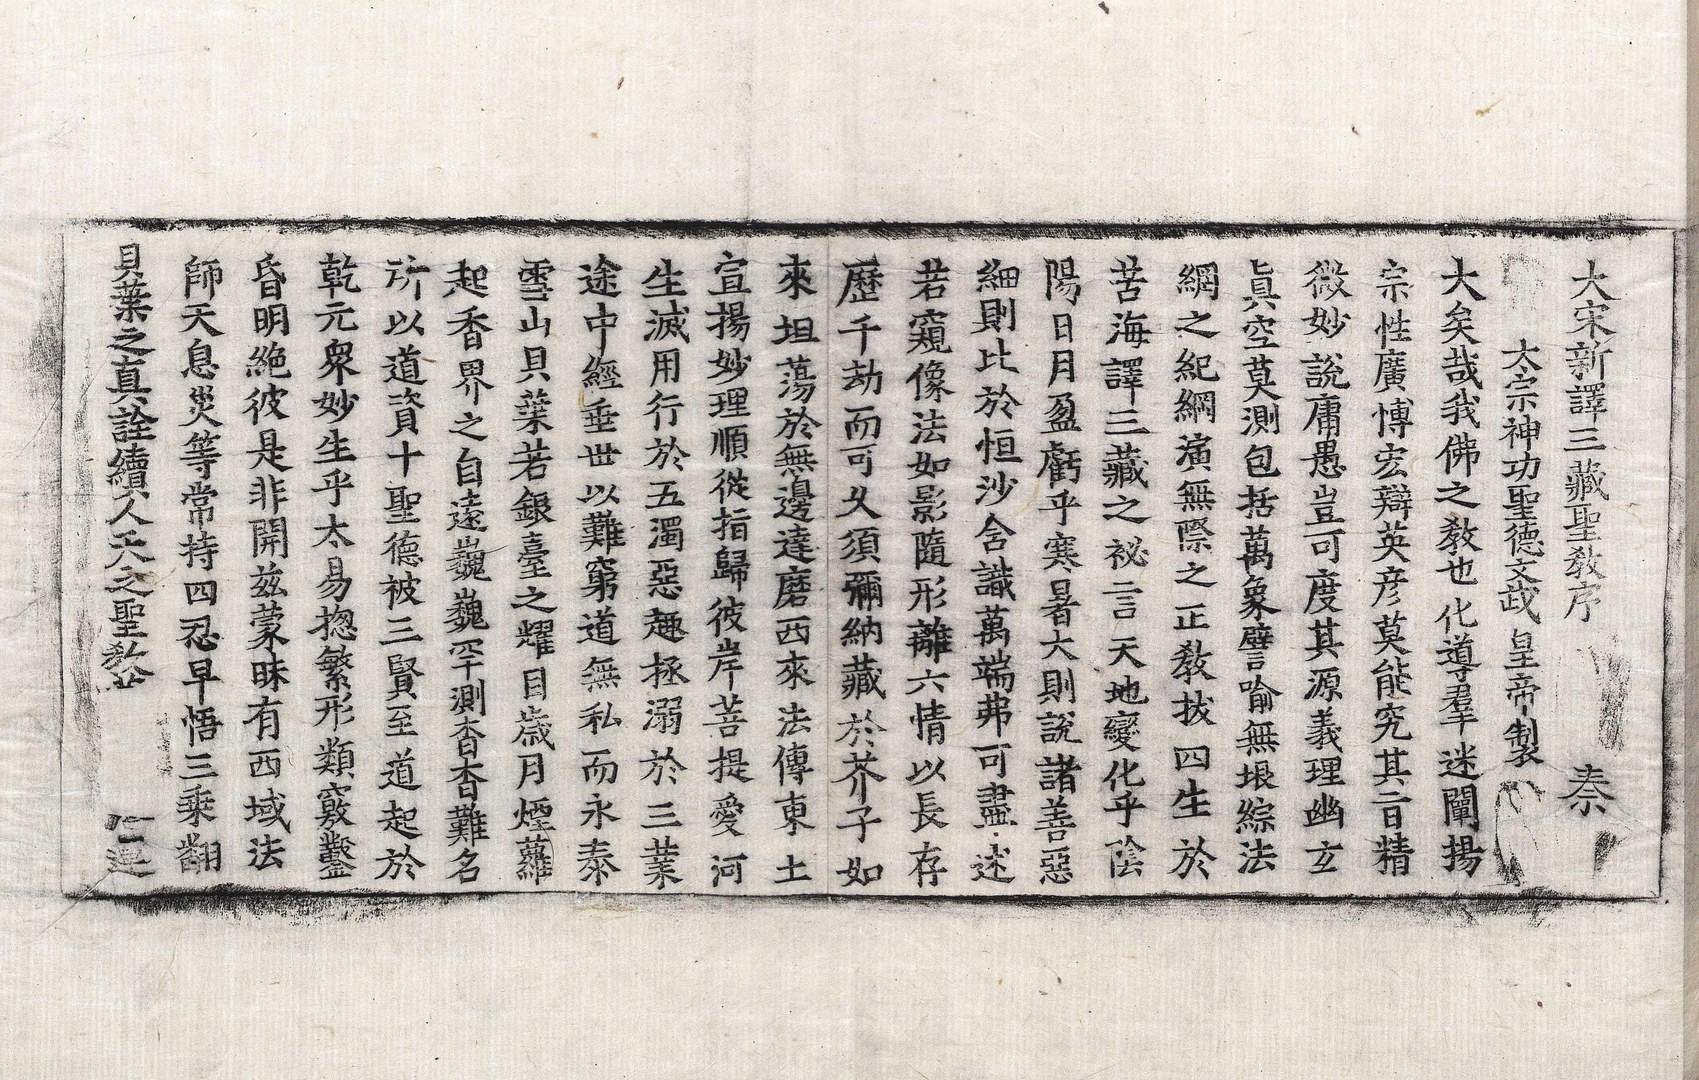 大宋新譯三藏聖教序 秦
太宗神功聖德文武皇帝製
大矣哉我佛之教也化導羣迷闡揚
宗性廣博宏辯英彦莫能究其旨精
微妙說庸愚豈可度其源義理幽玄
眞空莫測包括萬象譬喻無垠綜法
網之紀綱演無際之正教拔四生於
苦海譯三藏之祕言天地變化乎陰
陽日月盈虧乎寒暑大則說諸善惡
細則比於恒沙含識萬端弗可盡述
若窺像法如影隨形離六情以長存
歷千劫而可久須彌納藏於芥子如
來坦蕩於無邊達磨西來法傳東土
宣揚妙理順從指歸彼岸菩提愛河
生滅用行於五濁惡趣拯溺於三業
途中經垂世以難窮道無私而永泰
雪山貝葉若銀臺之耀目歲月煙蘿
起香界之自遠巍巍罕測杳杳難名
所以道資十聖德被三賢至道起於
乾元衆妙生乎太易揔繁形類竅鑿
昏明絶彼是非開兹蒙昧有西域法
師天息災等常持四忍早悟三乘翻
貝葉之真詮續人天之聖教 運